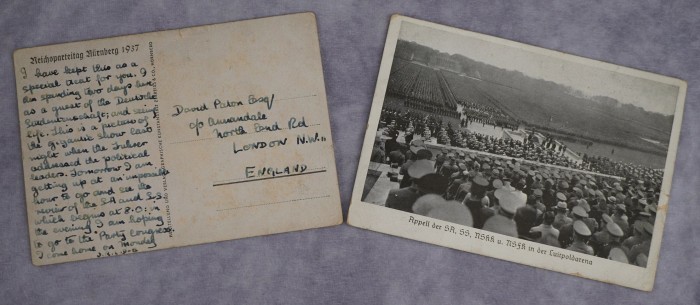 Reichsparteitag Nürnberg 1937
I have kept this as a
special treat for you. I
am spending two days here
as a guest of the Deutsche
and seeing
life. This is a picture of
the gigantic show last
night when the
addressed the political
leaders. Tomorrow I am
getting up at an impossible
hour to go and see the
review of the SA and S.S.
which begins at 8.0; in
the evening I am hoping
to go to the Party Congress.
I come home on Monday
David Paton Esq/
c/o Annandale
North End Rd
LONDON N.W.11
ENGLAND
Appell der SA, SS, NSKK u. NSFK in der Luitpoldarena